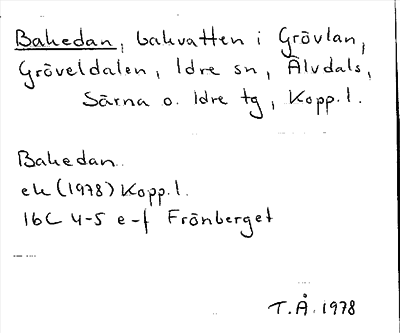 Bakedan, bakvatten i Grövlan,
Gröveldalen, Idre sn, Älvdals,
Särna o. Idre tg, Kopp.l.
Bakedan
ek (1978) Kopp.l.
16C 4-5 e-f Frönberget
T.Å. 1978